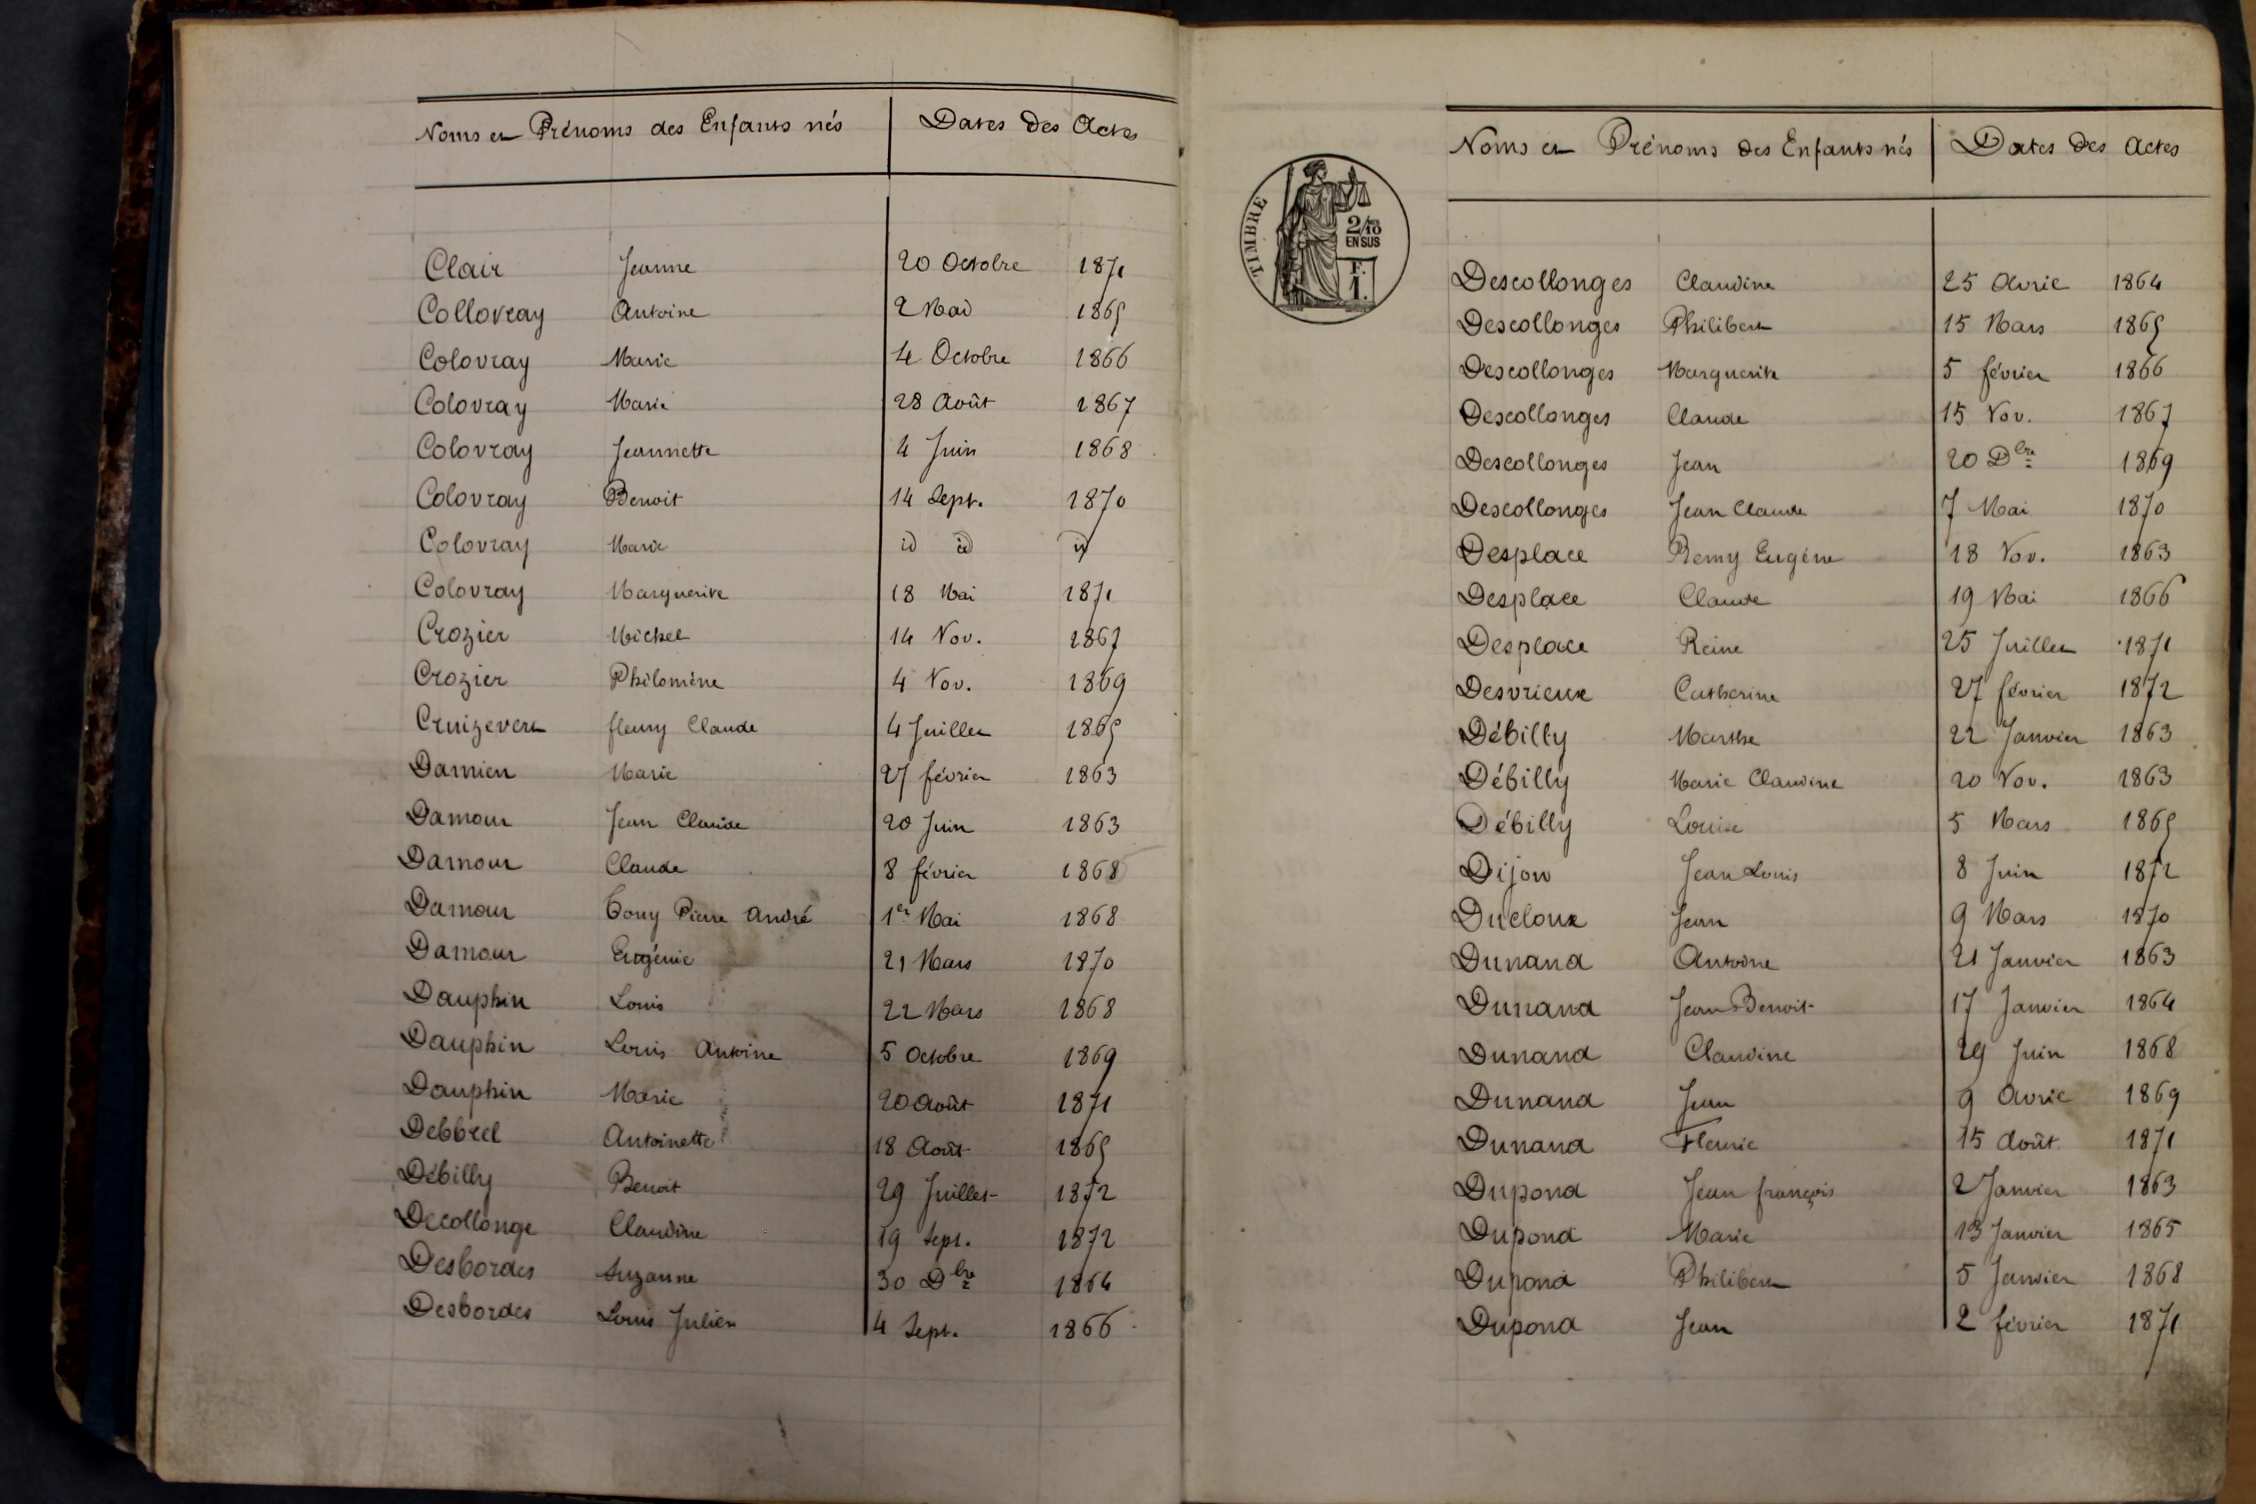 Noms et Prénoms des Enfants nés Dates des Actes
Clair Jeanne 20 Octobre 1871
Collovray Antoine 2 Mai 1865
Colovray Marie 4 Octobre 1866
Colovray Marie 28 Août 1867
Colovray Jeannette 4 Juin 1868
Colovray Benoit 14 Sept. 1870
Colovray Marie id id id
Colovray Marguerite 18 Mai 1871
Crozier Michel 14 Nov. 1867
Crozier Philomène 4 Nov. 1869
Cruizevert fleury Claude 4 Juillet 1865
Damien Marie 27 février 1863
Damour Jean Claude 20 Juin 1863
Damour Claude 8 février 1868
Damour Tony Pierre André 1er Mai 1868
Damour Eugénie 21 Mars 1870
Dauphin Louis 22 Mars 1868
Dauphin Louis Antoine 5 Octobre 1869
Dauphin Marie 20 Août 1871
Debbrel Antoinette 18 Août 1865
Débilly Benoit 29 Juillet 1872
Decollonge Claudine 19 Sept. 1872
Desbordes Suzanne 30 Dbre 1864
Desbordes Louis Julien 4 Sept. 1866
TIMBRE
2/10
EN SUS
F.
1.
Noms et Prénoms des Enfants nés Dates des Actes
Descollonges Claudine 25 Avril 1864
Descollonges Philibert 15 Mars 1865
Descollonges Marguerite 5 février 1866
Descollonges Claude 15 Nov. 1867
Descollonges Jean 20 Dbre 1869
Descollonges Jean Claude 7 Mai 1870
Desplace Remy Eugène 18 Nov. 1863
Desplace Claude 19 Mai 1866
Desplace Reine 25 Juillet 1871
Desvrieux Catherine 27 février 1872
Débilly Marthe 22 Janvier 1863
Débilly Marie Claudine 20 Nov. 1863
Débilly Louise 5 Mars 1865
Dijon Jean Louis 8 Juin 1872
Ducloux Jean 9 Mars 1870
Dunand Antoine 21 Janvier 1863
Dunand Jean Benoit 17 Janvier 1864
Dunand Claudine 29 Juin 1868
Dunand Jean 9 Avril 1869
Dunand Fleurie 15 Août 1871
Dupond Jean françois 2 Janvier 1863
Dupond Marie 13 Janvier 1865
Dupond Philibert 5 Janvier 1868
Dupond Jean 2 février 1871